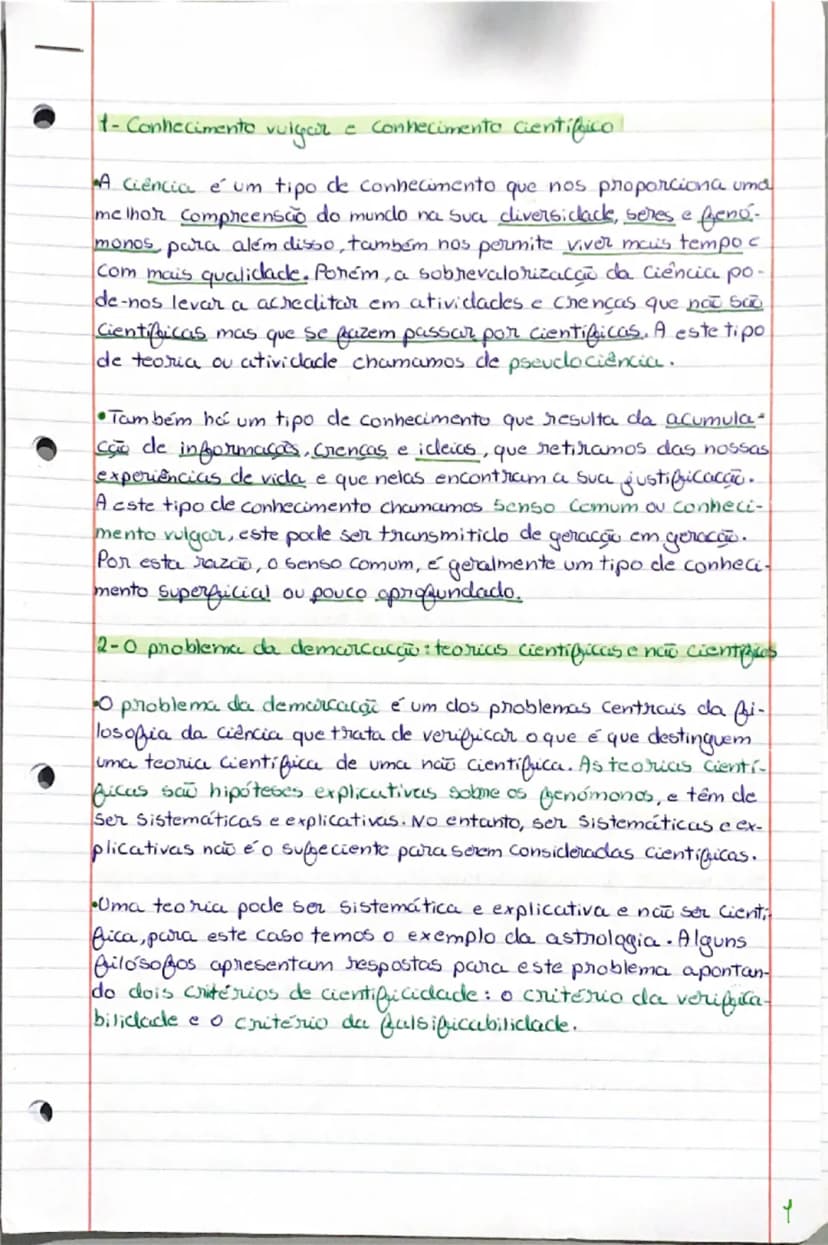 1- Conhecimento vulgar e conhecimento científico
•A ciência é um tipo de conhecimento que nos proporciona uma
melhor compreensão do mundo na sua diversidade, seres e fenó-
monos, para além disso, também nos permite viver mais tempo e
com mais qualidade. Porém, a sobrevalorizacção da ciência po-
de-nos levar a acreditar em atividades e crenças que não são
científicas mas que se fazem passar por científicas. A este tipo
de teoria ou atividade chamamos de pseudociência.
•Também há um tipo de conhecimento que resulta da acumula-
cção de informações, crenças e ideias, que retiramos das nossas
experiências de vida e que nelas encontram a sua justificacção.
A este tipo de conhecimento chamamos senso comum ou conheci-
mento vulgar, este pode ser transmitido de geracção em geracção.
Por esta razão, o senso comum, é geralmente um tipo de conheci-
mento superficial ou pouco aprofundado.
2-O problema da demarcacção: teorias científicas e não científicas
•O problema da demarcacção é um dos problemas centrais da fi-
losofia da ciência que trata de verificar o que é que destinguem
uma teoria científica de uma não científica. As teorias cientí-
ficas são hipóteses explicativas sobre os fenómonos, e têm de
ser sistemáticas e explicativas. No entanto, ser sistemáticas e ex-
plicativas não é o sufeciente para serem consideradas científicas.
•Uma teoria pode ser sistemática e explicativa e não ser cientí-
fica, para este caso temos o exemplo da astrologia. Alguns
filósofos apresentam respostas para este problema apontan-
do dois critérios de cientificidade: o critério da verifica-
bilidade e o critério da falsificabilidade.
1